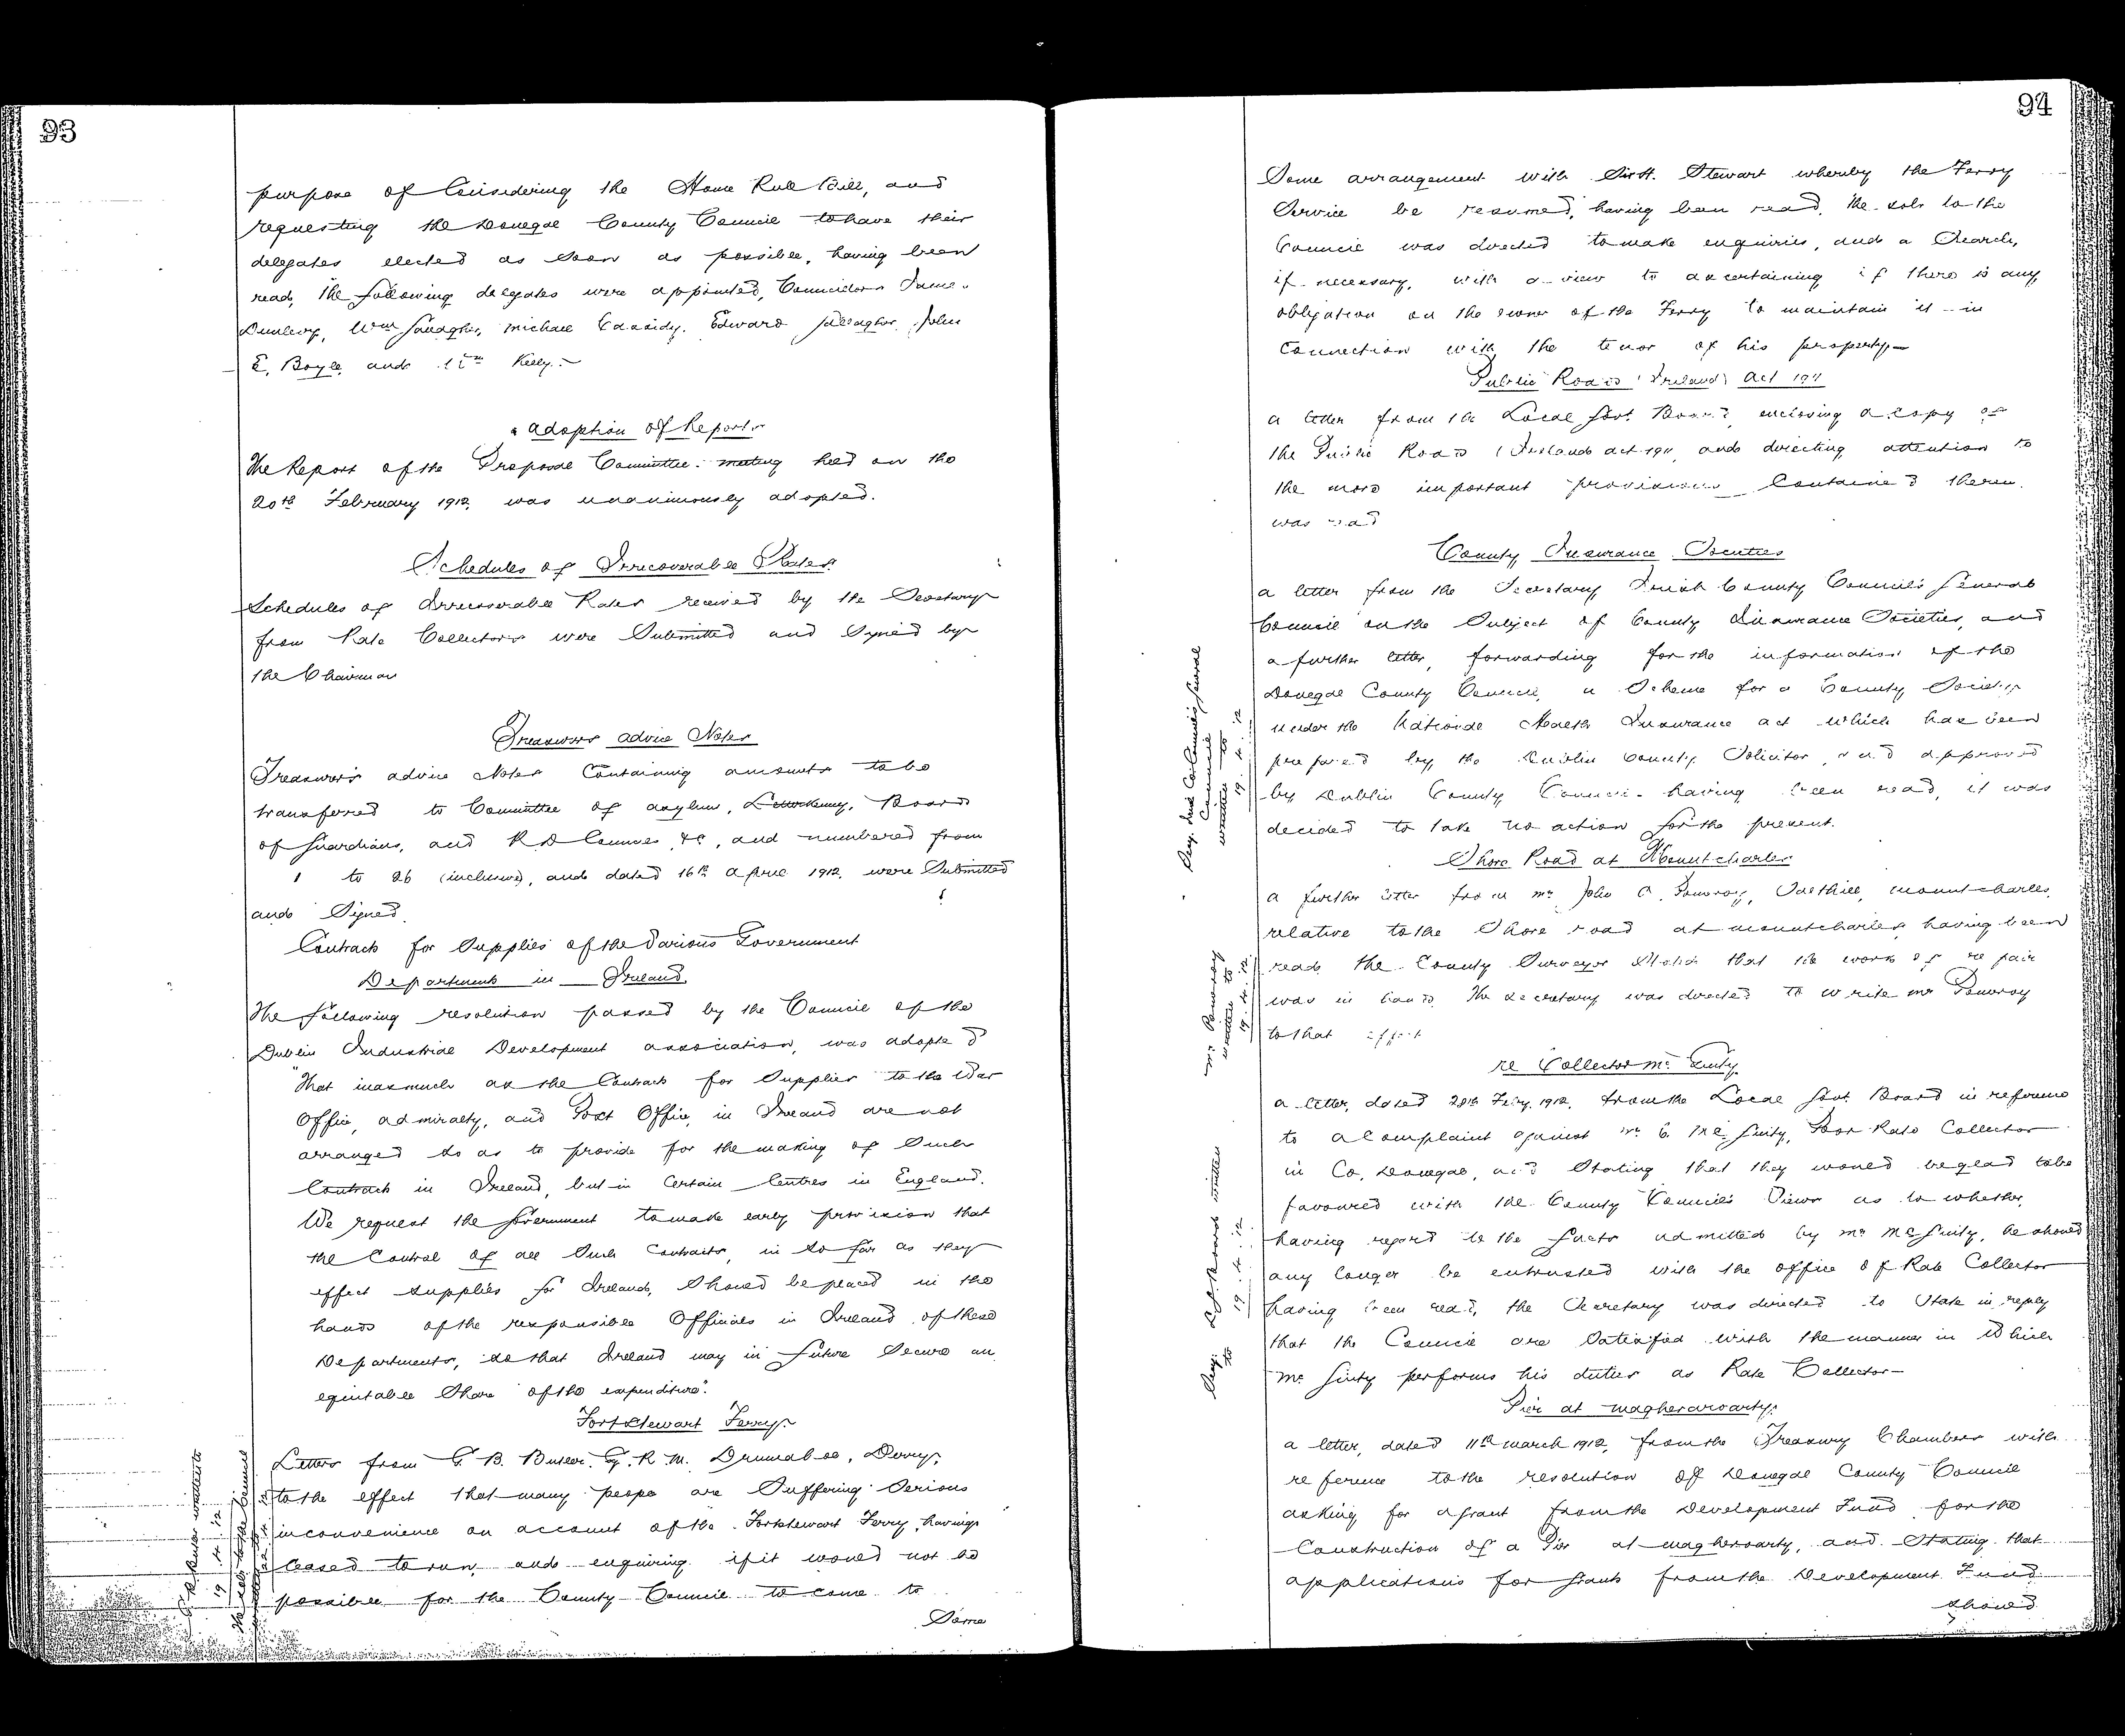 93
purpose of Considering the Home Rule Bill, and
requesting the Donegal County Council to have their
delegates elected as soon as possible, having been
read, the following delegates were appointed, Councillors James
Dunlevy, Wm Gallagher, Michael Cassidy, Edward Gallagher, John
E. Boyle and Kelly.
Adoption of Reports
The Report of the Proposal Committee meeting held on the
20th February 1912, was unanimously adopted.
Schedules of Irrecoverable Rates
Schedules of Irrecoverable Rates received by the Secretary
from Rate Collectors were Submitted and Signed by
the Chairman
Treasurers advice Notes
Treasurer's advice Notes Containing amounts to be
transferred to Committee of asylum, Letterkenny, Boards
of Guardians, and R D Councils &c, and numbered from
1 to 26 (inclusive), and dated 16th april 1912, were Submitted
and Signed.
Contracts for Supplies of the Various Government
Departments in Ireland.
The following resolution passed by the Council of the
Dublin Industrial Development association, was adopted
"That inasmuch as the Contracts for Supplies to the War
Office, admiralty, and Post Office, in Ireland are not
arranged so as to provide for the making of Such
Contracts in Ireland, but in Certain Centres in England.
We request the Government to make early provision that
the Control of all Such Contracts, in so far as they
effect supplies for Ireland, Should be placed in the
hands of the responsible Officials in Ireland of these
Departments, so that Ireland may in future Secure an
equitable Share of the expenditure".
Fortstewart Ferry
Letters from G. B. Butler, G. R. M. Drumaboe, Derry,
to the effect that many people are Suffering Serious
inconvenience on account of the Fortstewart Ferry, having
ceased to run, and enquiring if it would not be
possible for the County Council to come to
Some
Butler written to
19.4.12
94
Some arrangement with Sir H. Stewart whereby the Ferry
Service be resumed, having been read, the solr to the
Council was directed to make enquiries, and a Search,
if necessary, with a view to ascertaining if there is any
obligation on the owner of the Ferry to maintain it in
connection with the tenor of his property
Public Roads (Ireland) Act 1911
a letter from the Local Govt. Board, enclosing a copy of
the Public Roads (Ireland) act 1911, and directing attention to
the more important provisions Contained therein,
was read
County Insurance Societies
a letter from the Secretary Irish County Councils General
Council on the Subject of County Insurance Societies, and
a further letter, forwarding for the information of the
Donegal County Council, a Scheme for a County Society
under the National Health Insurance act which has been
prepared by the Dublin County Solicitor, and approved
by Dublin County Council having been read, it was
decided to take no action for the present.
Secy. Irish Co Councils General
Council
written to
19.4.12
Shore Road at Mountcharles
a further letter from Mr John A. Pomroy, Salthill, Mountcharles,
relative to the Shore road at Mountcharles, having been
read, the County Surveyor Stated that the work of repair
was in hands. The secretary was directed to write Mr Pomroy
to that effect
Mr Pomroy
written to
19.4.12
re Collector Mc Ginty
a letter, dated 28th Feby. 1912, from the Local Govt. Board in reference
to a Complaint against Mr C. Mc Ginty, Poor Rate Collector
in Co. Donegal, and Stating that they would be glad to be
favoured with the County Council's Views as to whether,
having regard to the facts admitted by Mr McGinty, he should
any longer be entrusted with the office of Rate Collector
having been read, the Secretary was directed to State in reply
that the Council are Satisfied with the manner in Which
Mc Ginty performs his duties as Rate Collector
Secy. L.G. Board written
to 19.4.12
Pier at Magheraroarty
a letter, dated 11th march 1912, from the Treasury Chambers with
reference to the resolution of Donegal County Council
asking for a Grant from the Development Fund for the
Construction of a Pier at Magheroarty, and Stating that
applications for Grants from the Development Fund
should